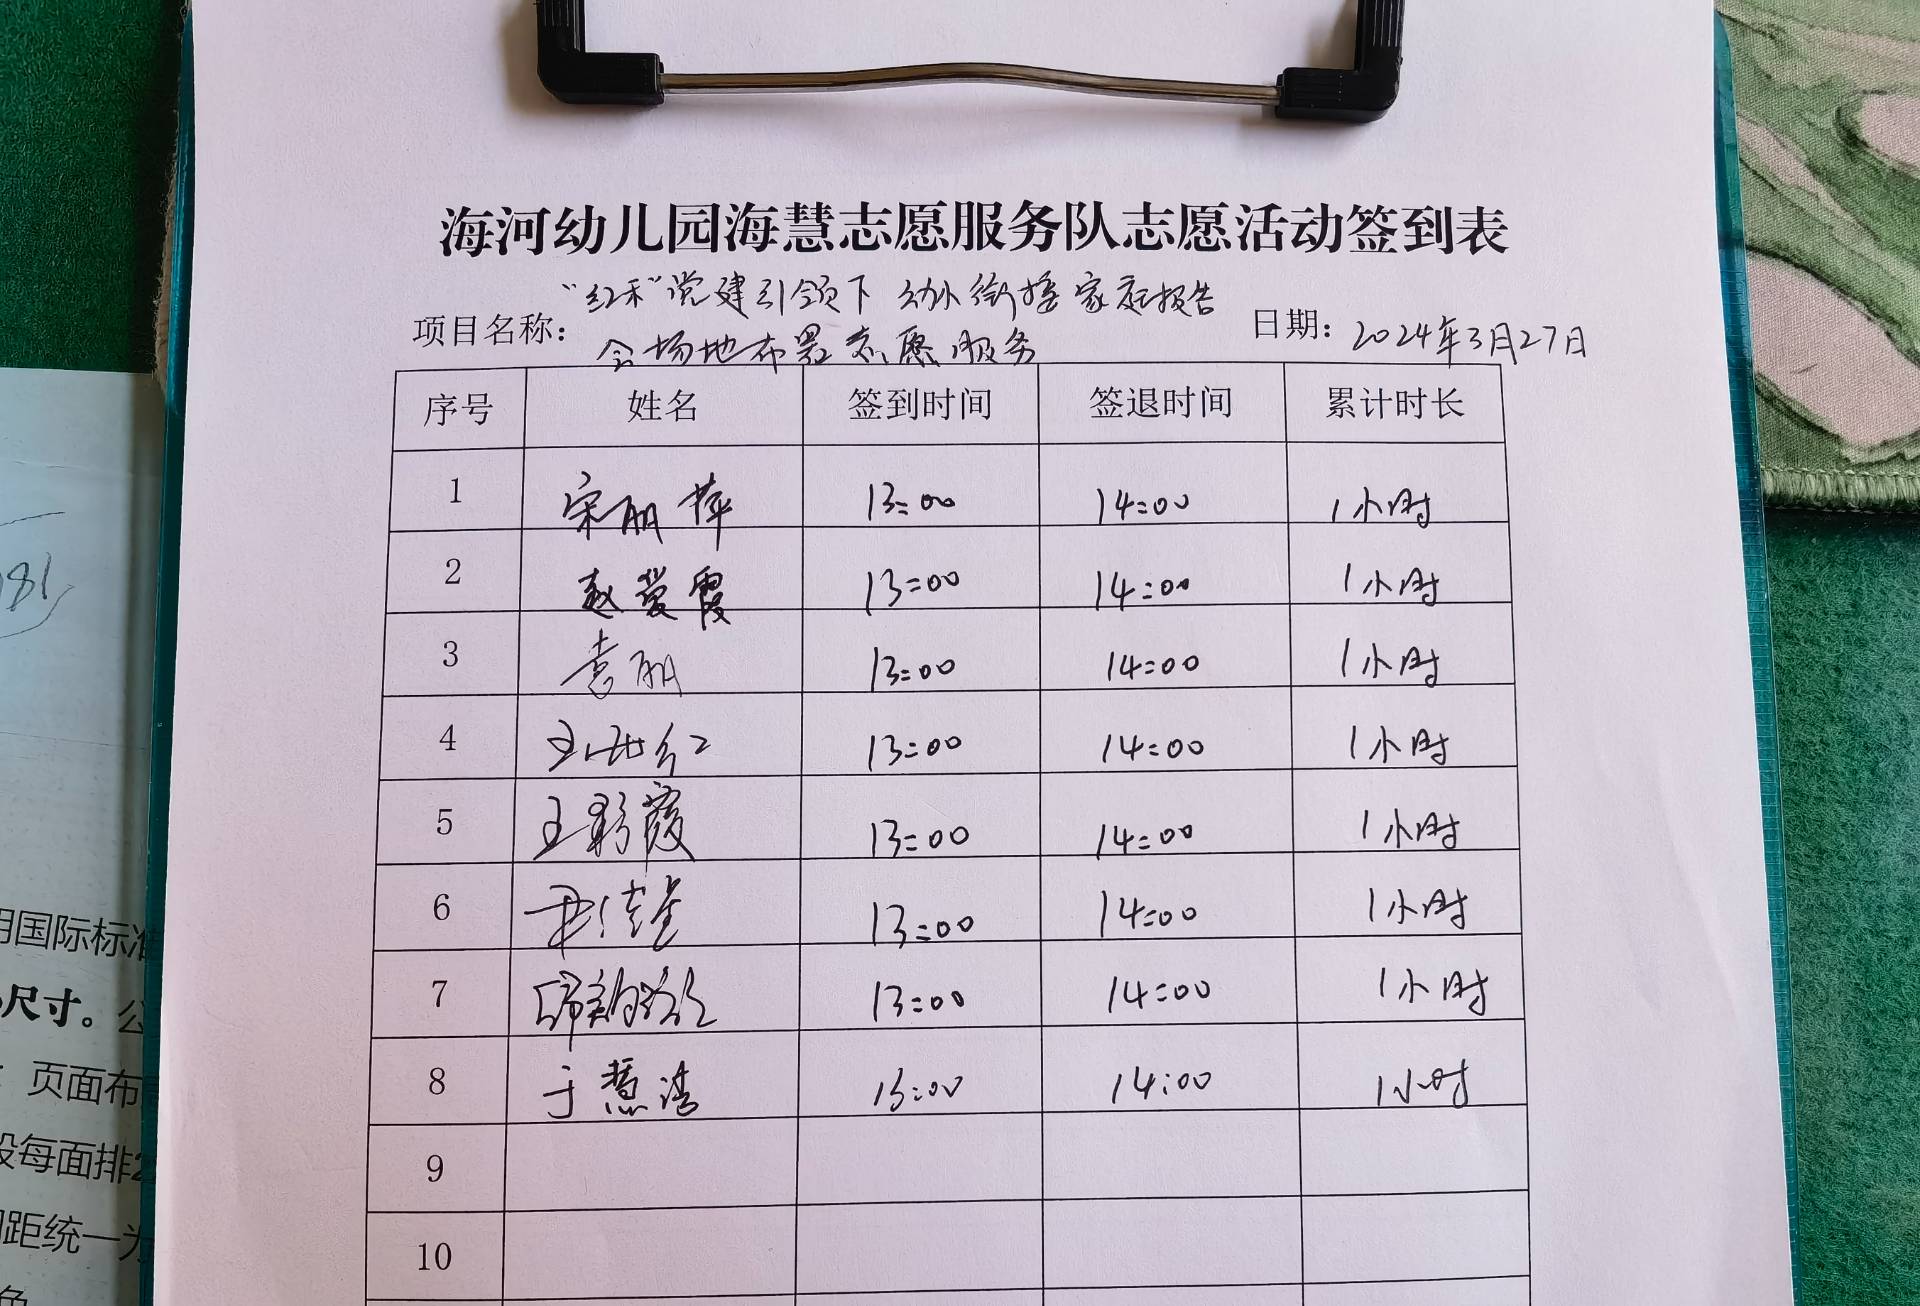 海河幼儿园海慧志愿服务队志愿活动签到表
项目名称：“红禾”党建引领下幼小衔接家庭报告
会场地布置志愿服务
日期：2024年3月27日
序号 姓名 签到时间 签退时间 累计时长
1 宋丽萍 13:00 14:00 1小时
2 赵爱霞 13:00 14:00 1小时
3 袁丽 13:00 14:00 1小时
4 13:00 14:00 1小时
5 王彩霞 13:00 14:00 1小时
6 13:00 14:00 1小时
7 13:00 14:00 1小时
8 于慧洁 13:00 14:00 1小时
9
10
981
用国际标准
尺寸。公
页面布
每面排2
距统一为
角